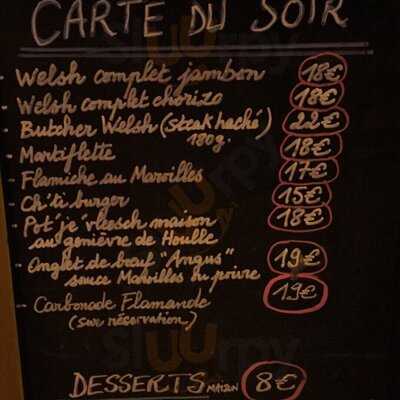 CARTE DU SOIR
- Welsh complet jambon 18€
- Welsh complet chorizo 18€
- Butcher Welsh (steak haché) 22€
180g.
- Martiflette 18€
- Flamiche au Maroilles 17€
- Ch'ti burger 15€
- Pot' je 'vleesch maison 18€
au genièvre de Houlle
- Onglet de bœuf "Angus" 19€
sauce Maroilles ou poivre
- Carbonade Flamande 19€
(sur réservation)
DESSERTS MAISON 8€
sluurpy
sluurpy
sluurpy